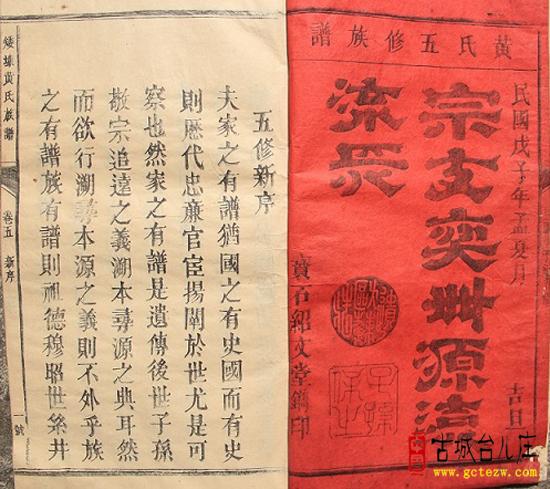 黄氏五修族譜
民國戊子年孟夏月
吉旦
宗支奕世源遠
流長
寶石紹文堂鐫印
子孫保之
五修新序
夫家之有譜猶國之有史國而有史
則歷代忠廉官宦揚闡於世尤是可
察也然家之有譜是遺傳後世子孫
敬宗追達之義溯本尋源之典耳然
而欲行溯尋本源之義則不外乎族
之有譜族有譜則祖德穆昭世絲井
黄氏族譜
卷五
新序
一號
古城台儿庄
www.gctezw.com